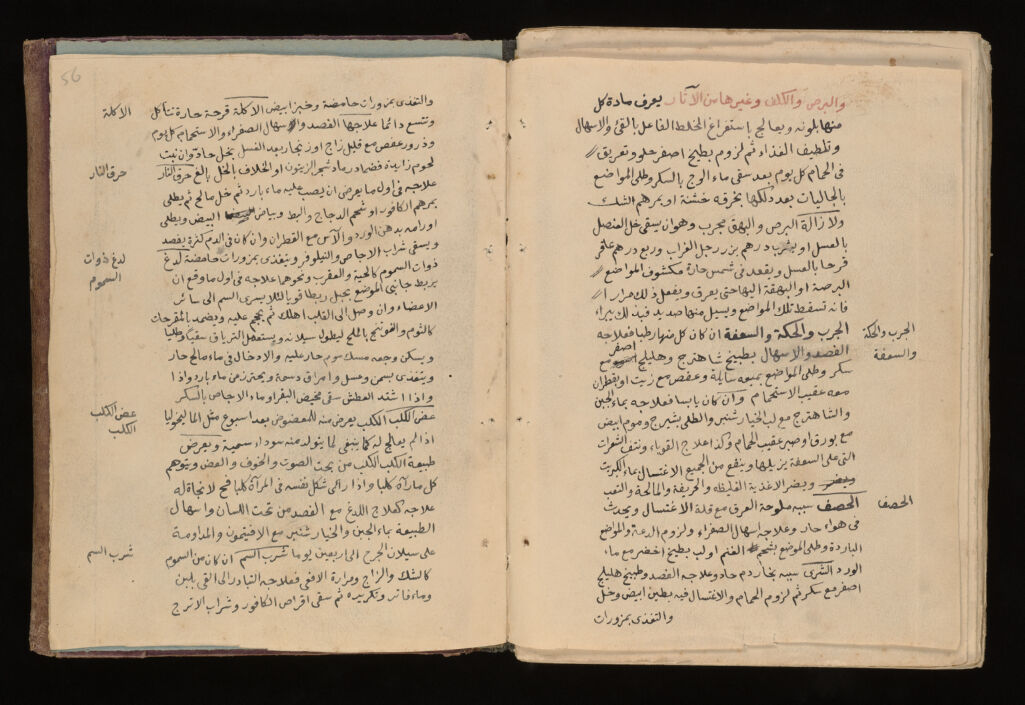 والبرص والكلف وغيرها من الآثار يعرف مادة كل
منها بلونه ويعالج باستفراغ الخلط الفاعل بالقئ والاسهال
وتلطيف الغذاء ثم لزوم بطيخ اصفر حلو وتعريق
في الحمام كل يوم بعد سقي ماء الوج بالسكر وطلى المواضع
بالجاليات بعد دلكها بخرقه خشنة او بمرهم الشك
ولازالة البرص والبهق مجرب وهو ان يسقى خل العنصل
بالعسل او درهم بزر رجل الغراب وربع درهم عاقر
قرحا بالعسل ويقعد في شمس حارة مكشوف المواضع
البرصة او البهقة اليها حتى يعرق ويفعل ذلك مرارا
فانه تسقط تلك المواضع ويسيل منها صديد فبذلك يبرأ
الجرب والحكة والسعفة ان كان كل منها رطبا فعلاجه
الجرب والحكة
والسعفة
القصد والاسهال بطبيخ شاهترج وهليلج اصفر مع
سكر وطلى المواضع بميعه سايلة وعفص مع زيت او بقطران
معه عقيب الاستحمام وان كان يابسا فعلاجه بماء الجبن
والشاهترج مع لب الخيار شنبر والطلى بشيرج وموم ابيض
مع بورق او صبر عقيب الحمام وكذا علاج القوباء ونتف الشعرات
التى على السعفة يزيلها وينفع من الجميع الاغتسال بماء الكبريت
ويضر الاغذية الغليظه والحريفة والمالحة والتعب
الحصف سببه ملوحة العرق مع قلة الاغتسال ويحدث
الحصف
في هواء حار وعلاجه اسهال الصفراء ولزوم الدعة والمواضع
الباردة وطلى الموضع بشحم الغنم او لب بطيخ اخضر مع ماء
الورد الشرى سببه بخار دم حاد وعلاجه الفصد وطبيخ هليلج
اصفر مع سكر ثم لزوم الحمام والاغتسال فيه بطين ابيض وخل
والتغذى بمزورات
56
والتغذى بمزورات حامضة وخبز ابيض الاكلة قرحة حارة تتأكل
الاكلة
وتتسع دائما علاجها الفصد واسهال الصفراء والاستحمام كل يوم
وذرور عفص مع قليل زاج او زنجار بعد الغسل بخل حاد وان نبت
لحوم زايدة فضماد رماد شجر الزيتون او الخلاف بالخل بالغ حرق النار
حرق النار
علاجه في اول ما يعرض ان يصب عليه ماء بارد ثم خل مالح ثم يطلى
بمرهم الكافور او شحم الدجاج والبط وبياض البيض ويطلى
اورامه بدهن الورد والآس مع القطران وان كان في الدم كثرة يفصد
ويسقى شراب الاجاص والنيلوفر ويتغذى بمزورات حامضة لدغ
لدغ ذوات
السموم
ذوات السموم كالحية والعقرب ونحوها علاجه في اول ما وقع ان
يربط جانبى الموضع بحبل ربطا قويا لئلا يسرى السم الى سائر
الاعضاء وان وصل الى القلب اهلك ثم يحجم عليه ويضمد بالمقرحات
كالثوم والفوتنج بالملح ليطول سيلانه ويستعمل الترياق سقيا وطليا
ويسكن وجعه مسك موم حار عليه والادخال في ماء مالح حار
ويتغذى بسمن وعسل وامراق دسمة ويحترز من ماء بارد واذا
واذا اشتد العطش سقى مخيض البقر او ماء الاجاص بالسكر
عض الكلب الكلب يعرض منه للمعضوض بعد اسبوع مثل الماليخوليا
عض الكلب
الكلب
اذا لم يعالج له كما ينبغى لما يتولد منه سوداء سمية ويعرض
طبيعة الكلب الكلب من بحت الصوت والخوف والعض ويتوهم
كل ما رآه كلبا واذا رأى شكل نفسه في المرآة كلبا فح لا نجاة له
علاجه كعلاج اللدغ مع الفصد من تحت اللسان واسهال
الطبيعة بماء الجبن والخيار شنبر مع الافتيمون والمداومة
على سيلان الجرح الى اربعين يوما شرب السم ان كان من السموم
شرب السم
كالشك والزاج ومرارة الافعى فعلاجه التبادر الى القى بلبن
وماء فاتر وتكريره ثم سقى اقراص الكافور وشراب الاترج